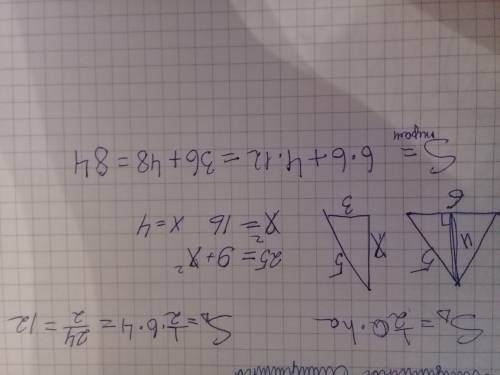 S△ = 1/2 a · hₐ   S△ = 1/2 · 6 · 4 = 24/2 = 12
5 h 5 x 25 = 9 + x²
6 3 x² = 16 x = 4
S пирам = 6·6 + 4·12 = 36 + 48 = 84